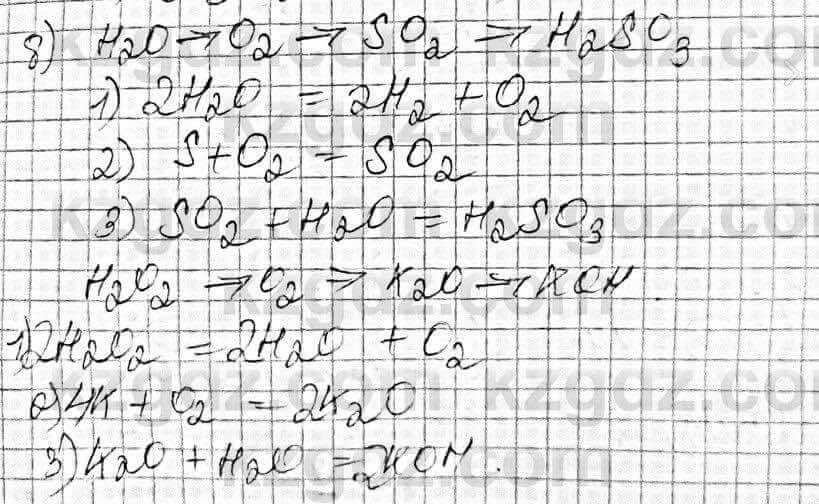 8) H2O → O2 → SO2 → H2SO3
1) 2H2O = 2H2 + O2
2) S + O2 = SO2
3) SO2 + H2O = H2SO3
H2O2 → O2 → K2O → KOH.
1) 2H2O2 = 2H2O + O2
2) 4K + O2 = 2K2O
3) K2O + H2O = 2KOH.